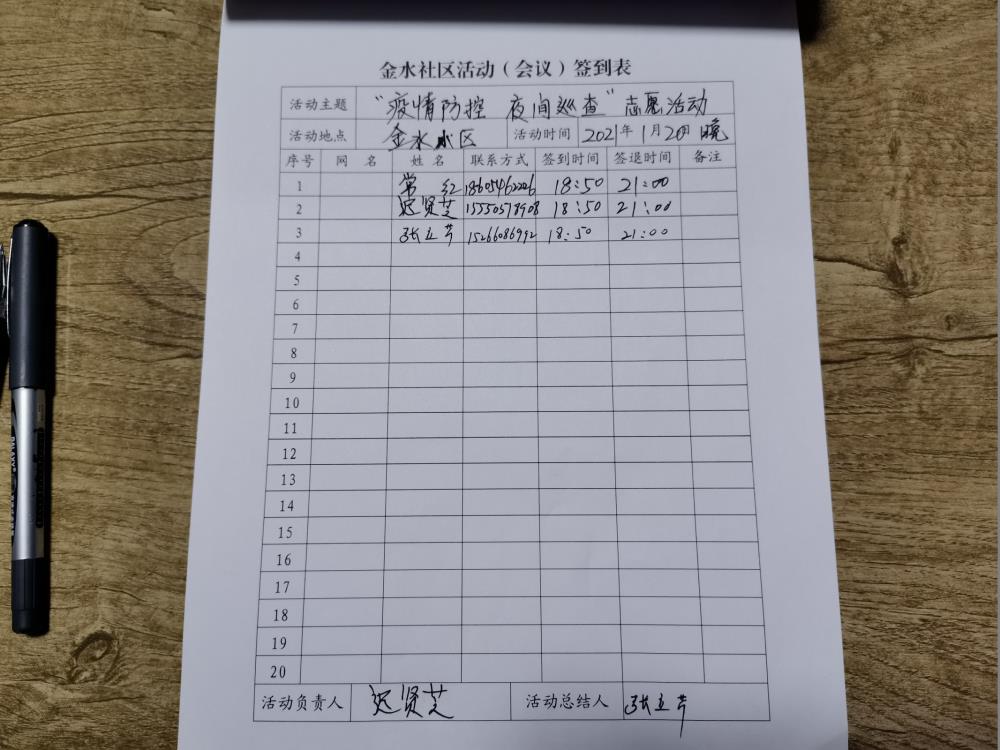 金水社区活动（会议）签到表
活动主题 “疫情防控 夜间巡查”志愿活动
活动地点 金水小区 活动时间 2021年1月20日晚
序号 网名 姓名 联系方式 签到时间 签退时间 备注
1 常红 18605462226 18:50 21:00
2 迟贤芝 15550578908 18:50 21:00
3 张立芹 15266086992 18:50 21:00
4
5
6
7
8
9
10
11
12
13
14
15
16
17
18
19
20
活动负责人 迟贤芝 活动总结人 张立芹